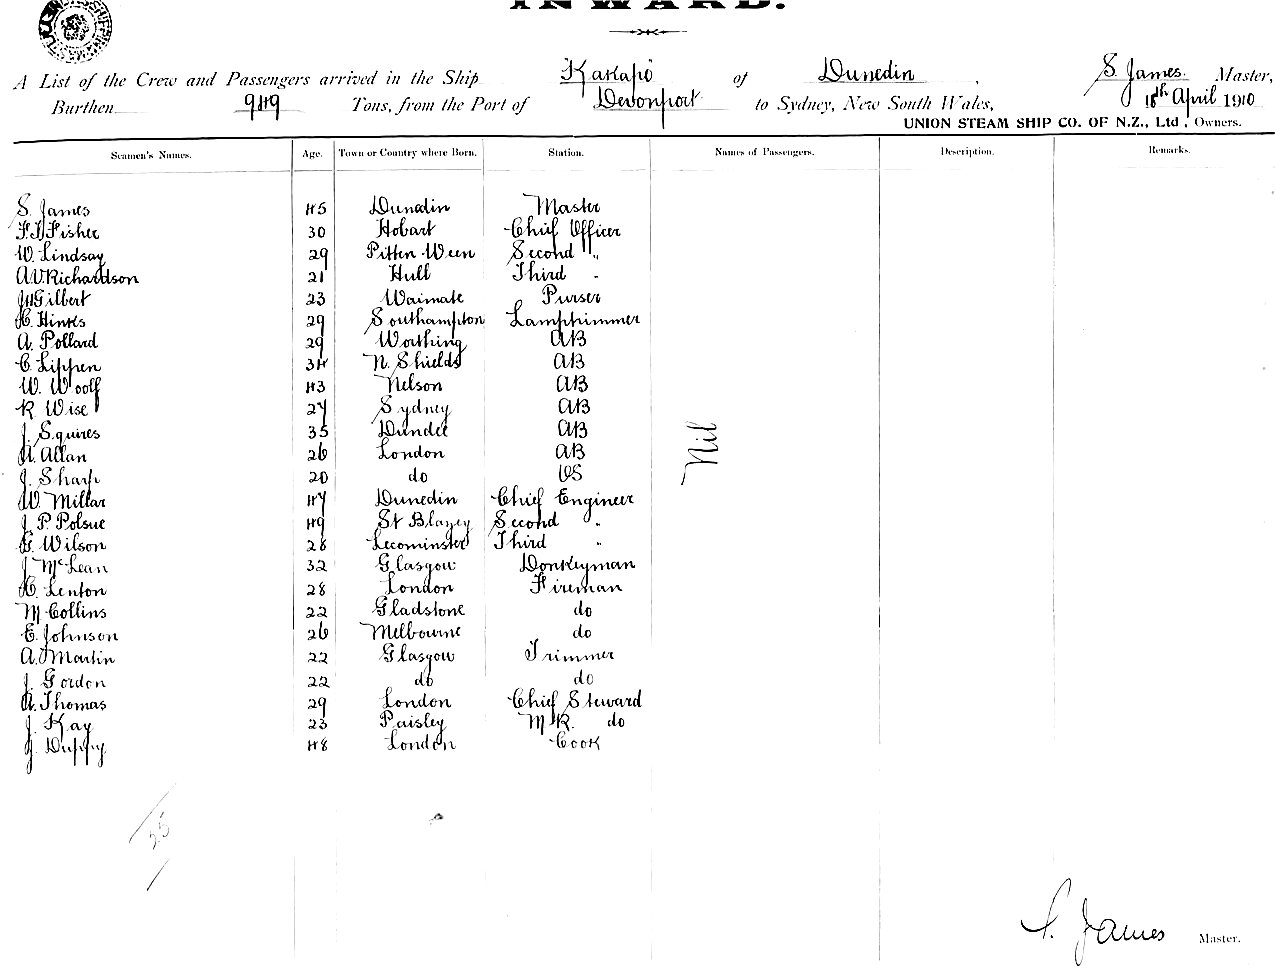 INWARD.
A List of the Crew and Passengers arrived in the Ship Kakapo of Dunedin, S. James. Master,
Burthen 949 Tons, from the Port of Devonport to Sydney, New South Wales, 18th April 1910
UNION STEAM SHIP CO. OF N.Z., Ltd, Owners.
Seamen's Names. Age. Town or Country where Born. Station. Names of Passengers. Description. Remarks.
S. James 45 Dunedin Master
Fisher 30 Hobart Chief Officer
W. Lindsay 29 Pitten Ween Second "
A.V. Richardson 21 Hull Third "
Gilbert 23 Waimate Purser
H. Hinks 29 Southampton Lamptrimmer
A. Pollard 29 Worthing AB
C. Lippen 34 N. Shields AB
W. Woolf 43 Nelson AB
R. Wise 27 Sydney AB
J. Squires 35 Dundee AB
A. Allan 26 London AB
J. Sharp 20 do OS
W. Millar 47 Dunedin Chief Engineer
J. P. Polsue 49 St Blazey Second "
G. Wilson 28 Leominster Third "
J McLean 32 Glasgow Donkeyman
H. Lenton 28 London Fireman
M Collins 22 Gladstone do
E. Johnson 26 Melbourne do
A. Martin 22 Glasgow Trimmer
J. Gordon 22 do do
A. Thomas 29 London Chief Steward
J. Kay 23 Paisley M.R. do
J. Duffy 48 London Cook
Nil
25
S. James Master.